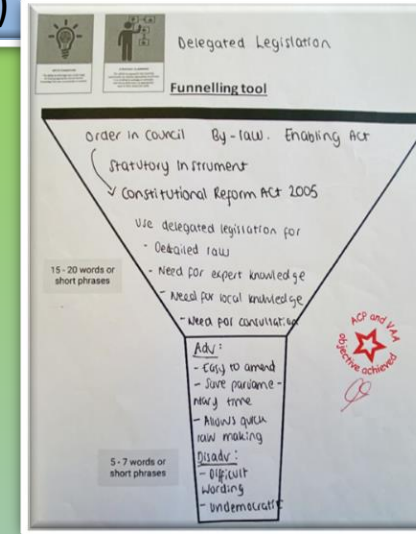 )
Delegated Legislation
Funnelling tool
Order in Council By-law. Enabling Act
Statutory Instrument
Constitutional Reform Act 2005
Use delegated legislation for
- Detailed law
- Need for expert knowledge
- Need for local knowledge
- Need for consultation
15 - 20 words or
short phrases
Adv:
- Easy to amend
- Save parliame-
ntary time
- Allows quick
law making
Disadv:
- Difficult
wording
- undemocratic
5 - 7 words or
short phrases
ACP and VAA
objective achieved